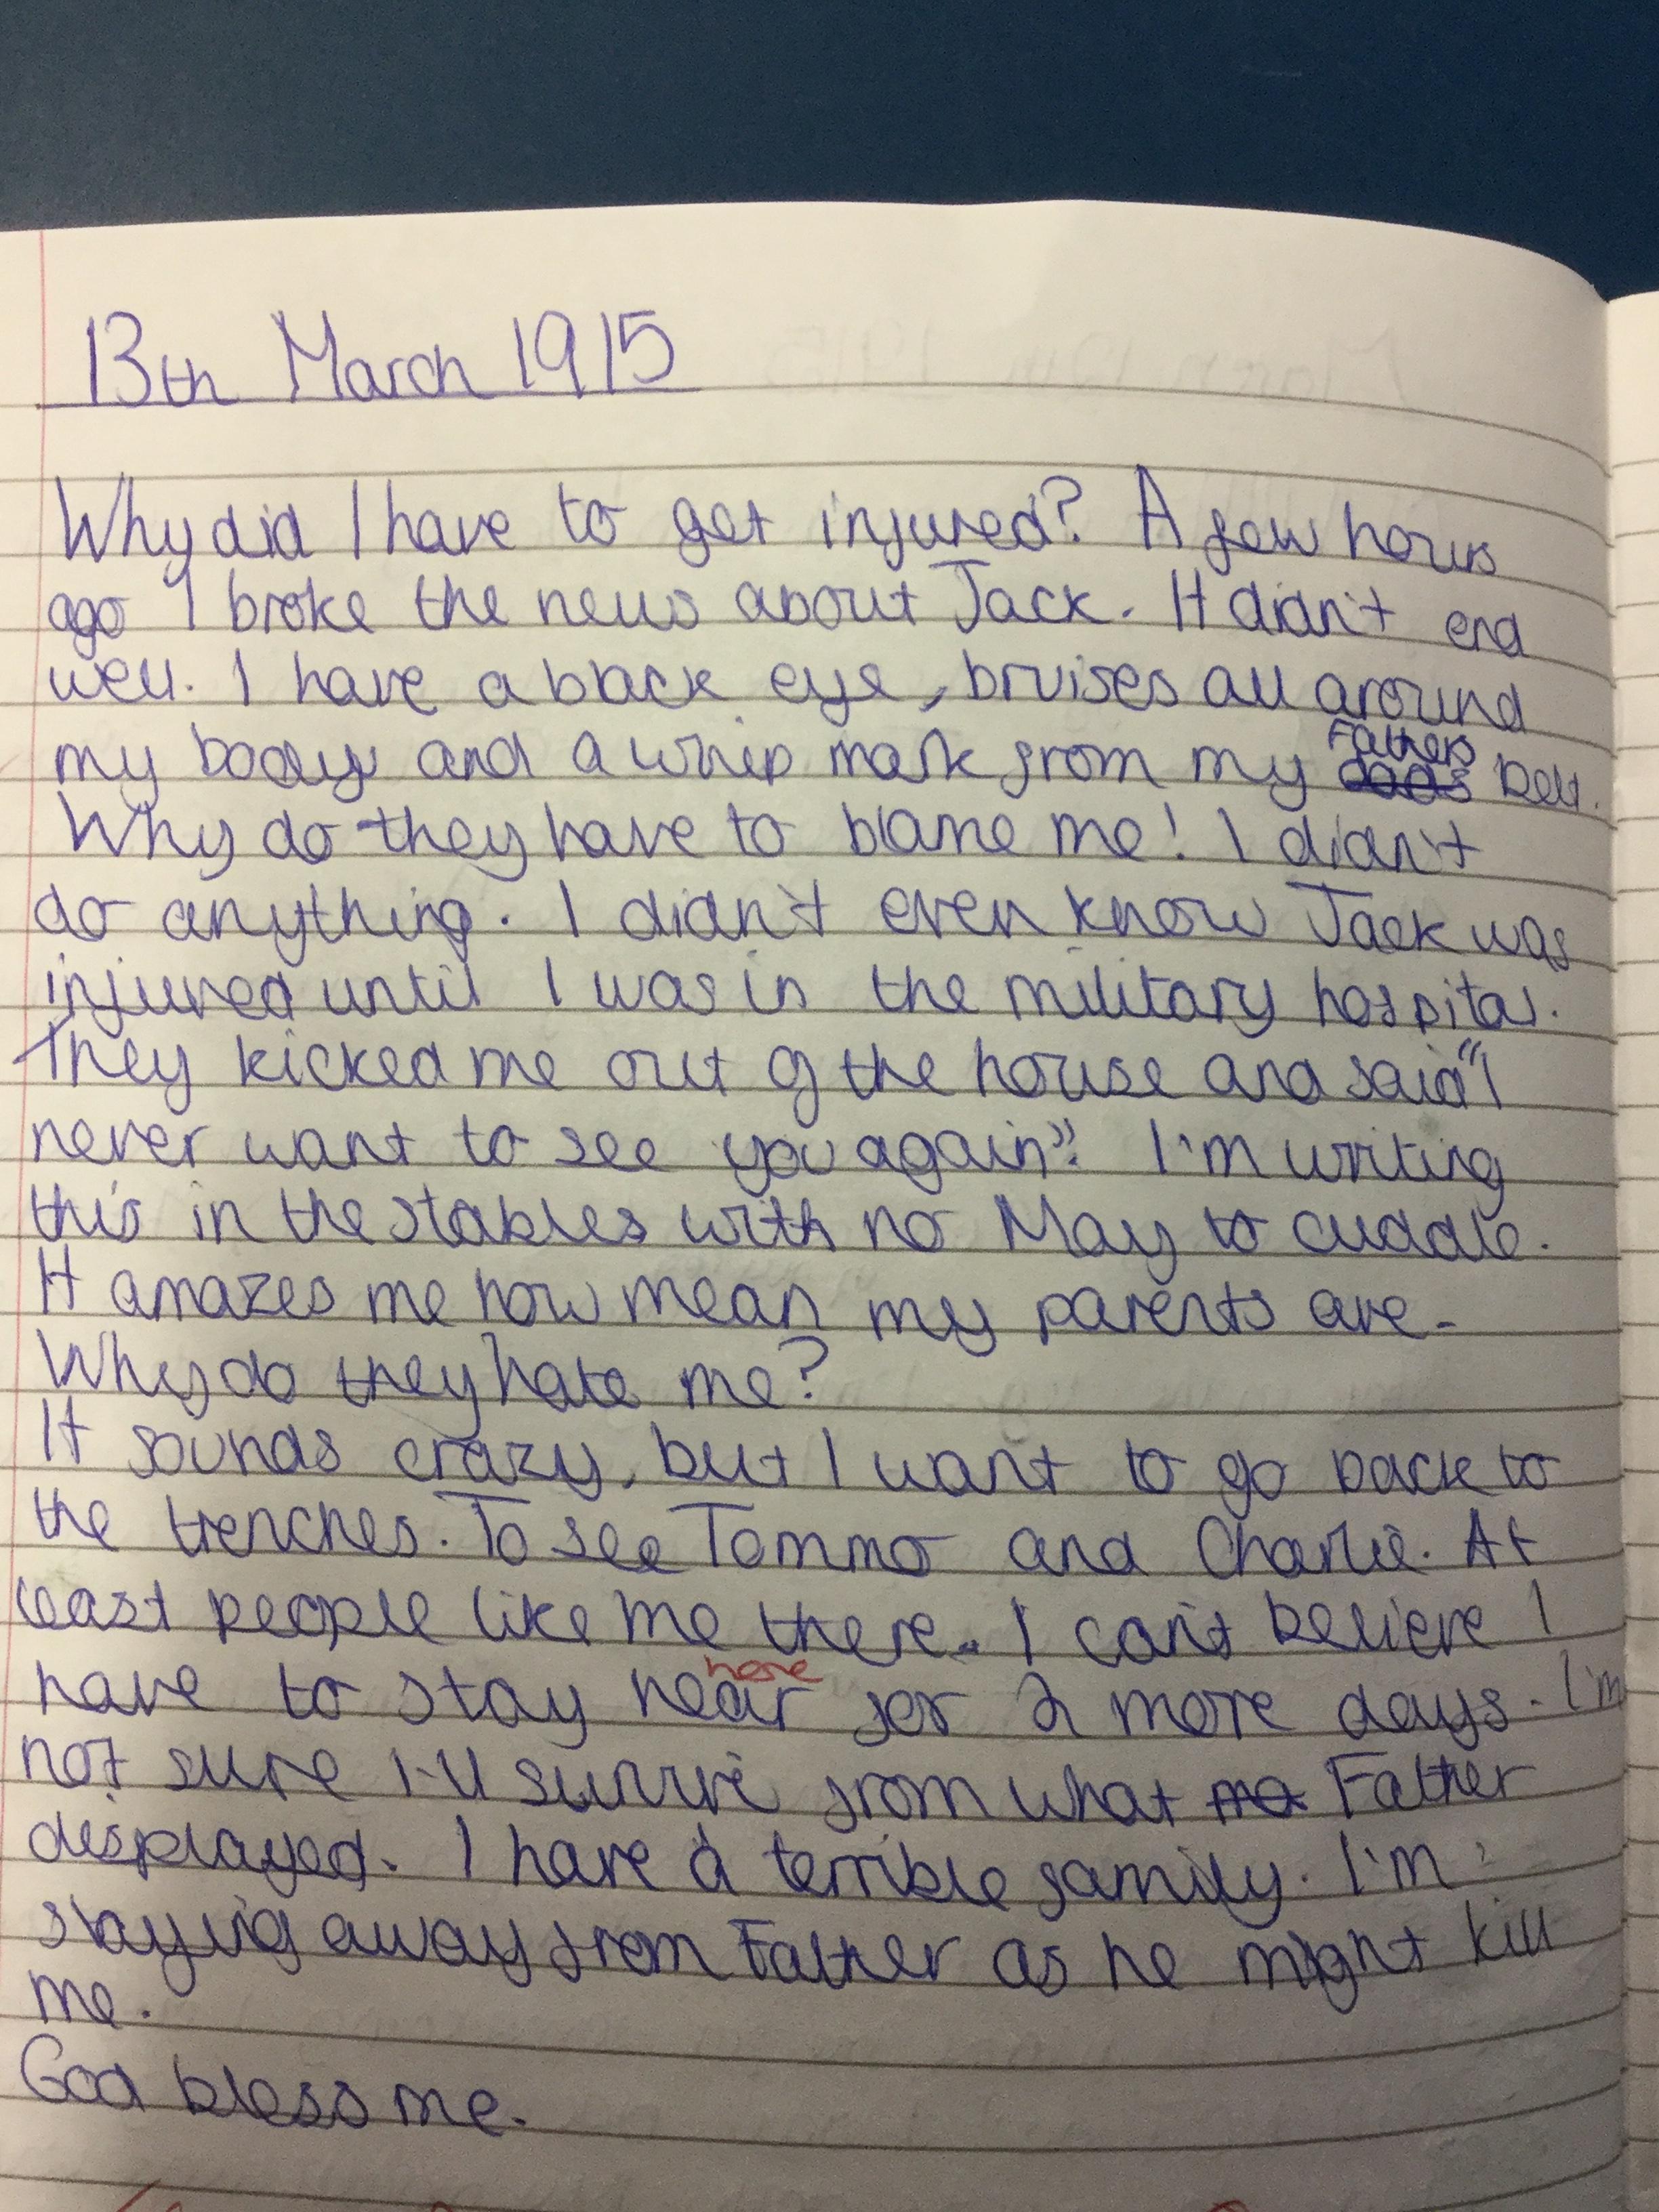 13th March 1915
Why did I have to get injured? A few hours
ago I broke the news about Jack. It didn't end
well. I have a black eye, bruises all around
my body and a whip mark from my Fathers belt.
Why do they have to blame me! I didn't
do anything. I didn't even know Jack was
injured until I was in the military hospital.
They kicked me out of the house and said "I
never want to see you again". I'm writing
this in the stables with no May to cuddle.
It amazes me how mean my parents are.
Why do they hate me?
It sounds crazy, but I want to go back to
the trenches. To see Tommo and Charlie. At
least people like me there. I can't believe I
here
have to stay hear for 2 more days. I'm
not sure I'll survive from what Father
displayed. I have a terrible family. I'm
staying away from Father as he might kill
me.
God bless me.